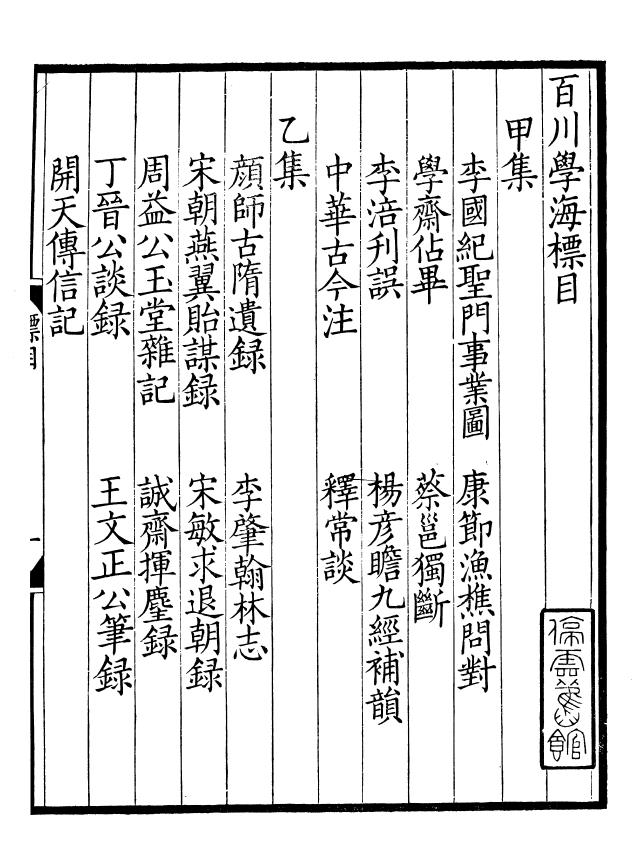 百川學海標目
甲集
李國紀聖門事業圖 康節漁樵問對
學齋佔畢 蔡邕獨斷
李涪刋誤 楊彦瞻九經補韻
中華古今注 釋常談
乙集
顔師古隋遺録 李肇翰林志
宋朝燕翼貽謀録 宋敏求退朝録
周益公玉堂雜記 誠齋揮麈録
丁晉公談録 王文正公筆録
開天傳信記
標目
一